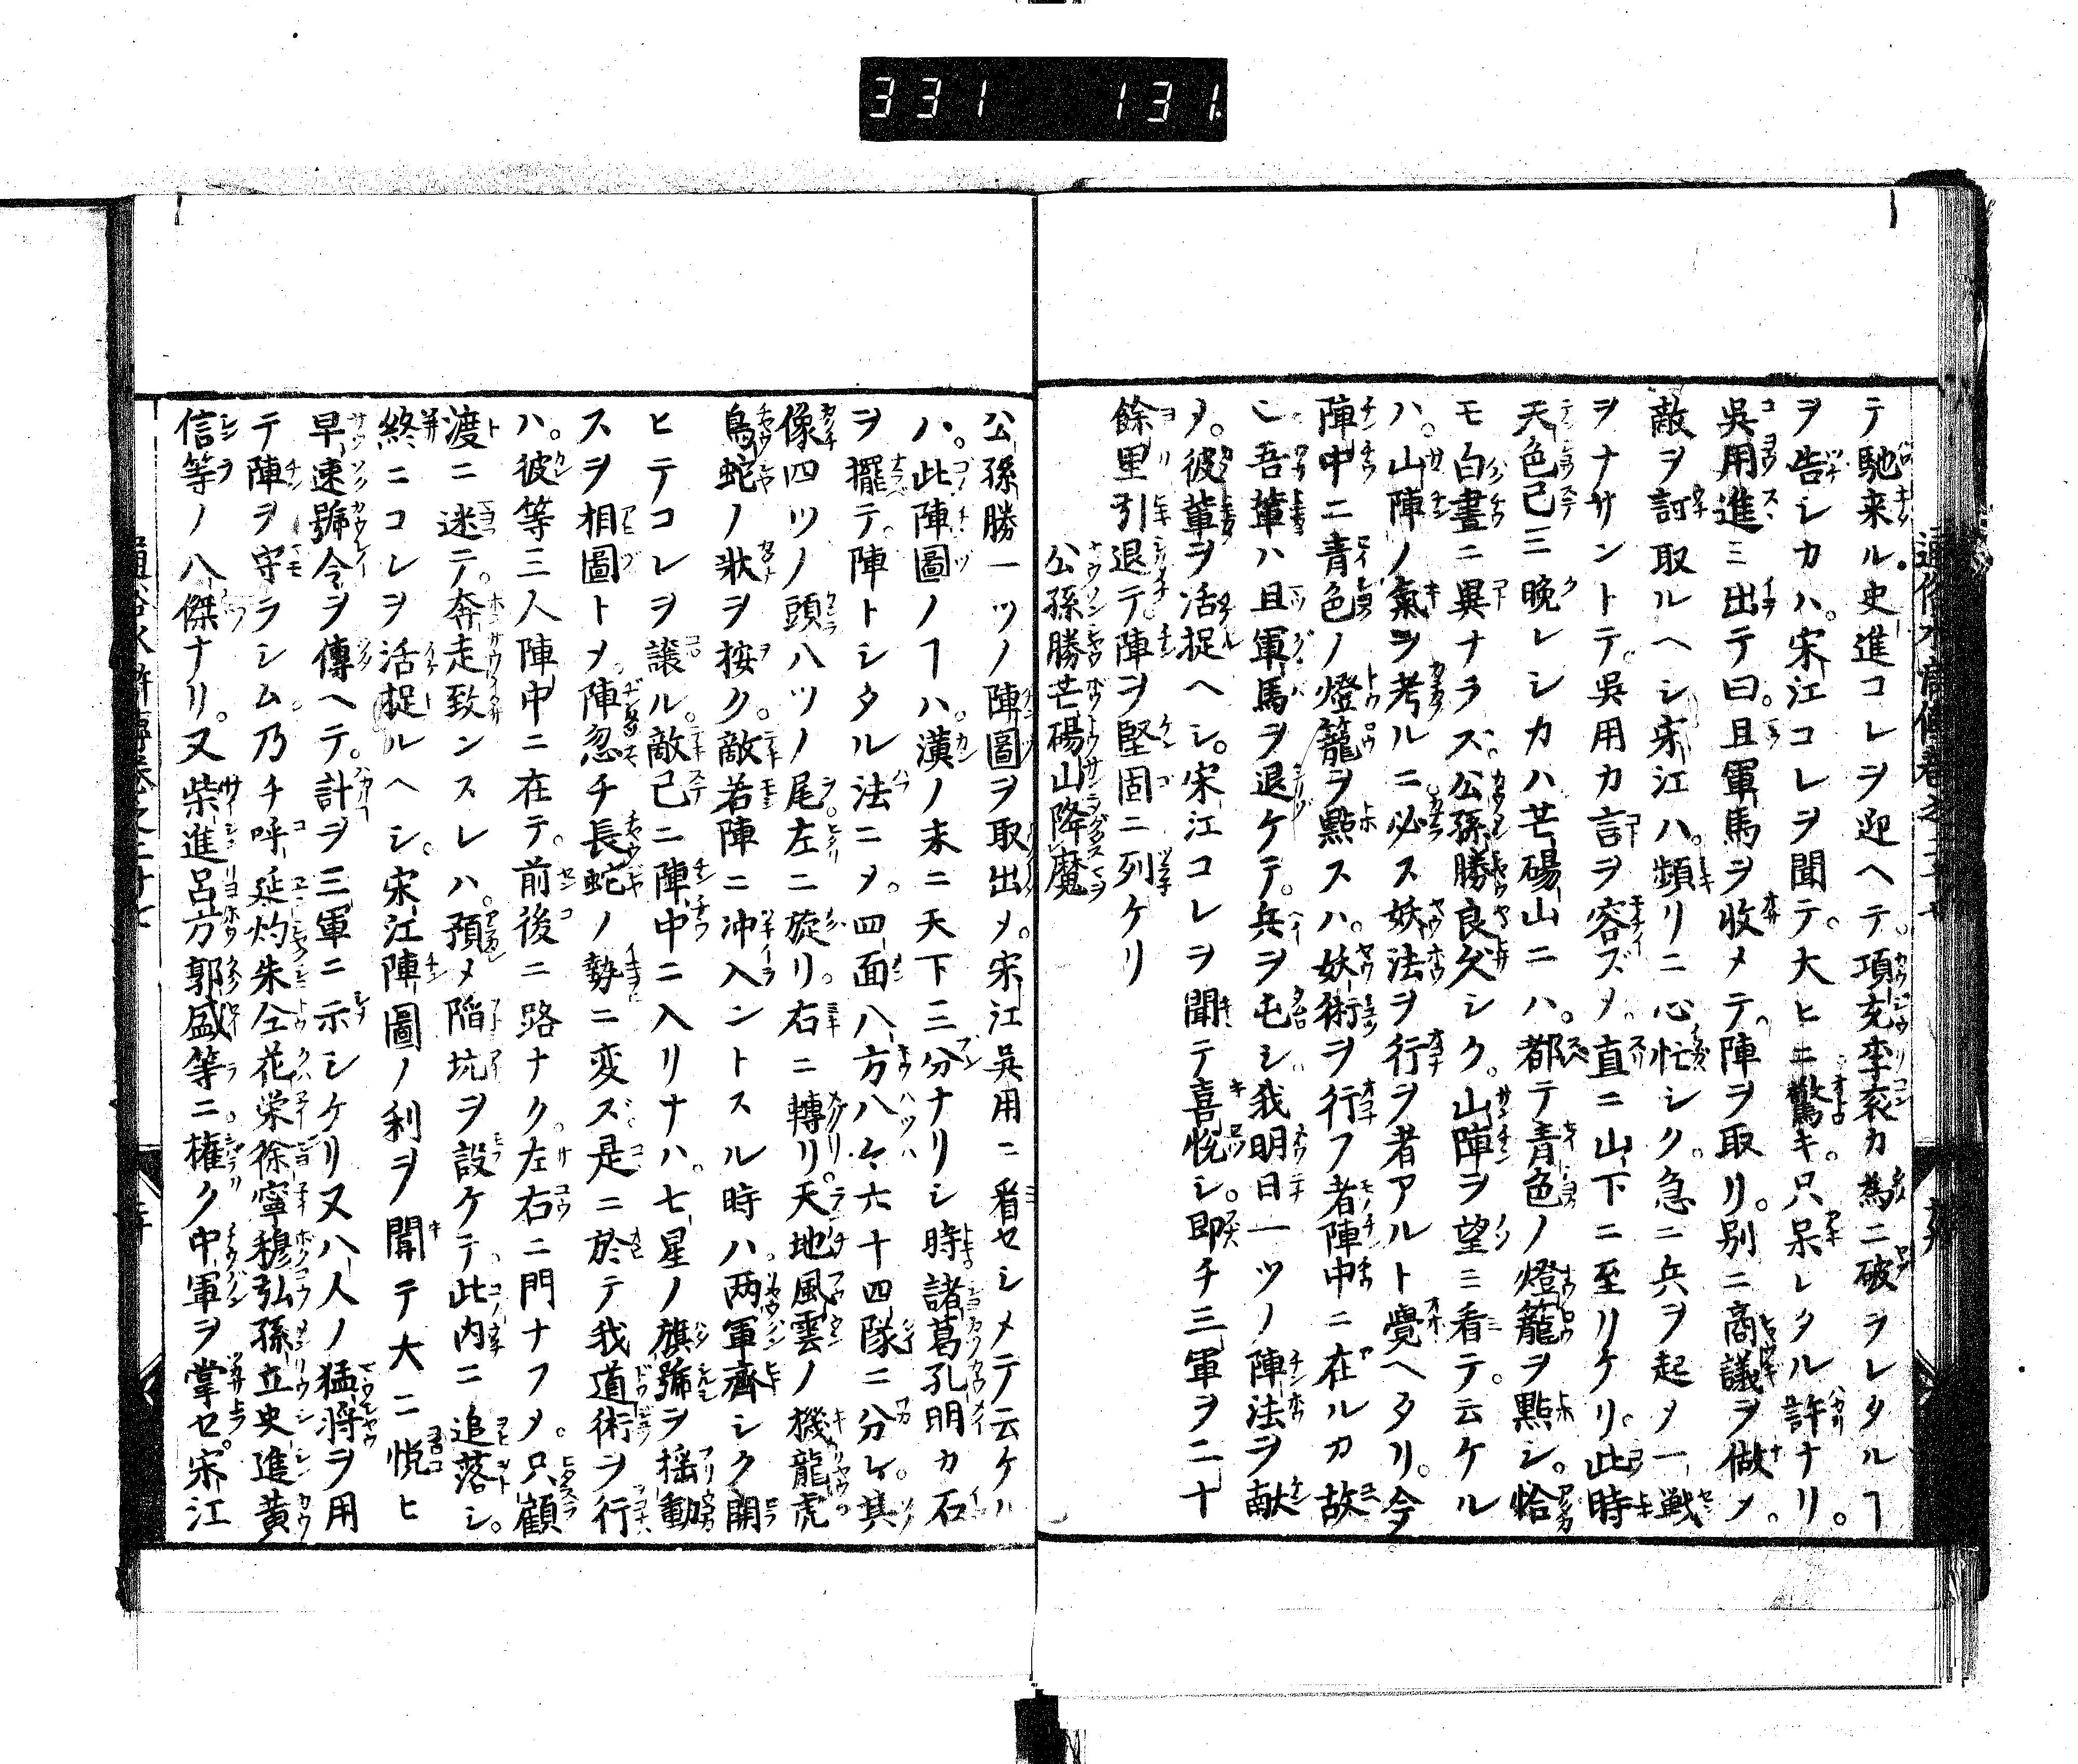 331 131
テ馳来ル史進コレヲ迎ヘテ。項充李袞カ為ニ破ラレタルヿ
ヲ告シカハ。宋江コレヲ聞テ。大ヒニ驚キ。只呆レタル許ナリ。
呉用進ミ出テ曰。且軍馬ヲ收メテ。陣ヲ取リ。別ニ商議ヲ做メ。
敵ヲ討取ルヘシ宋江ハ。頻リニ心忙シク。急ニ兵ヲ起メ一戦
ヲナサントテ。呉用カ言ヲ容ズメ。直ニ山下ニ至リケリ。此時
天色已ニ晩レシカハ芒碭山ニハ。都テ青色ノ燈籠ヲ點シ。恰
モ白晝ニ異ナラス。公孫勝良久シク。山陣ヲ望ミ看テ。云ケル
ハ。山陣ノ氣ヲ考ルニ必ス妖法ヲ行ヲ者アルト覺ヘタリ。今
陣中ニ青色ノ燈籠ヲ點スハ。妖術ヲ行フ者陣中ニ在ルカ故
ニ吾輩ハ且軍馬ヲ退ケテ。兵ヲ屯シ我明日一ツノ陣法ヲ献
メ。彼輩ヲ活捉ヘシ。宋江コレヲ聞テ喜悦シ。即チ三軍ヲ二十
餘里引退テ。陣ヲ堅固ニ列ケリ
公孫勝芒碭山降魔
公孫勝一ツノ陣圖ヲ取出メ。宋江呉用ニ看セシメテ云ケル
ハ。此陣圖ノヿハ。漢ノ末ニ天下三分ナリシ時諸葛孔明カ石
ヲ擺テ。陣トシタル法ニメ。四面八方八々六十四隊ニ分レ。其
像四ツノ頭八ツノ尾左ニ旋リ。右ニ轉リ。天地風雲ノ機龍虎
鳥蛇ノ狀ヲ按ク。敵若陣ニ冲入ントスル時ハ。两軍齊シク開
ヒテコレヲ譲ル。敵已ニ陣中ニ入リナハ。七星ノ旗號ヲ揺動
スヲ相圖トメ。陣忽チ長蛇ノ勢ニ変ズ。是ニ於テ我道術ヲ行
ハ。彼等三人陣中ニ在テ。前後ニ路ナク。左右ニ門ナフメ。只顧
渡ニ迷テ。奔走致ンスレハ。預メ陥坑ヲ設ケテ。此内ニ追落シ。
終ニコレヲ活捉ルヘシ。宋江陣圖ノ利ヲ聞テ大ニ悦ヒ
早速號令ヲ傳ヘテ。計ヲ三軍ニ示シケリ又八人ノ猛将ヲ用
テ陣ヲ守ラシム。乃チ呼延灼朱仝花栄徐寧穆弘孫立史進黄
信等ノ八傑ナリ。又柴進呂方郭盛等ニ。権ク中軍ヲ掌セ。宋江